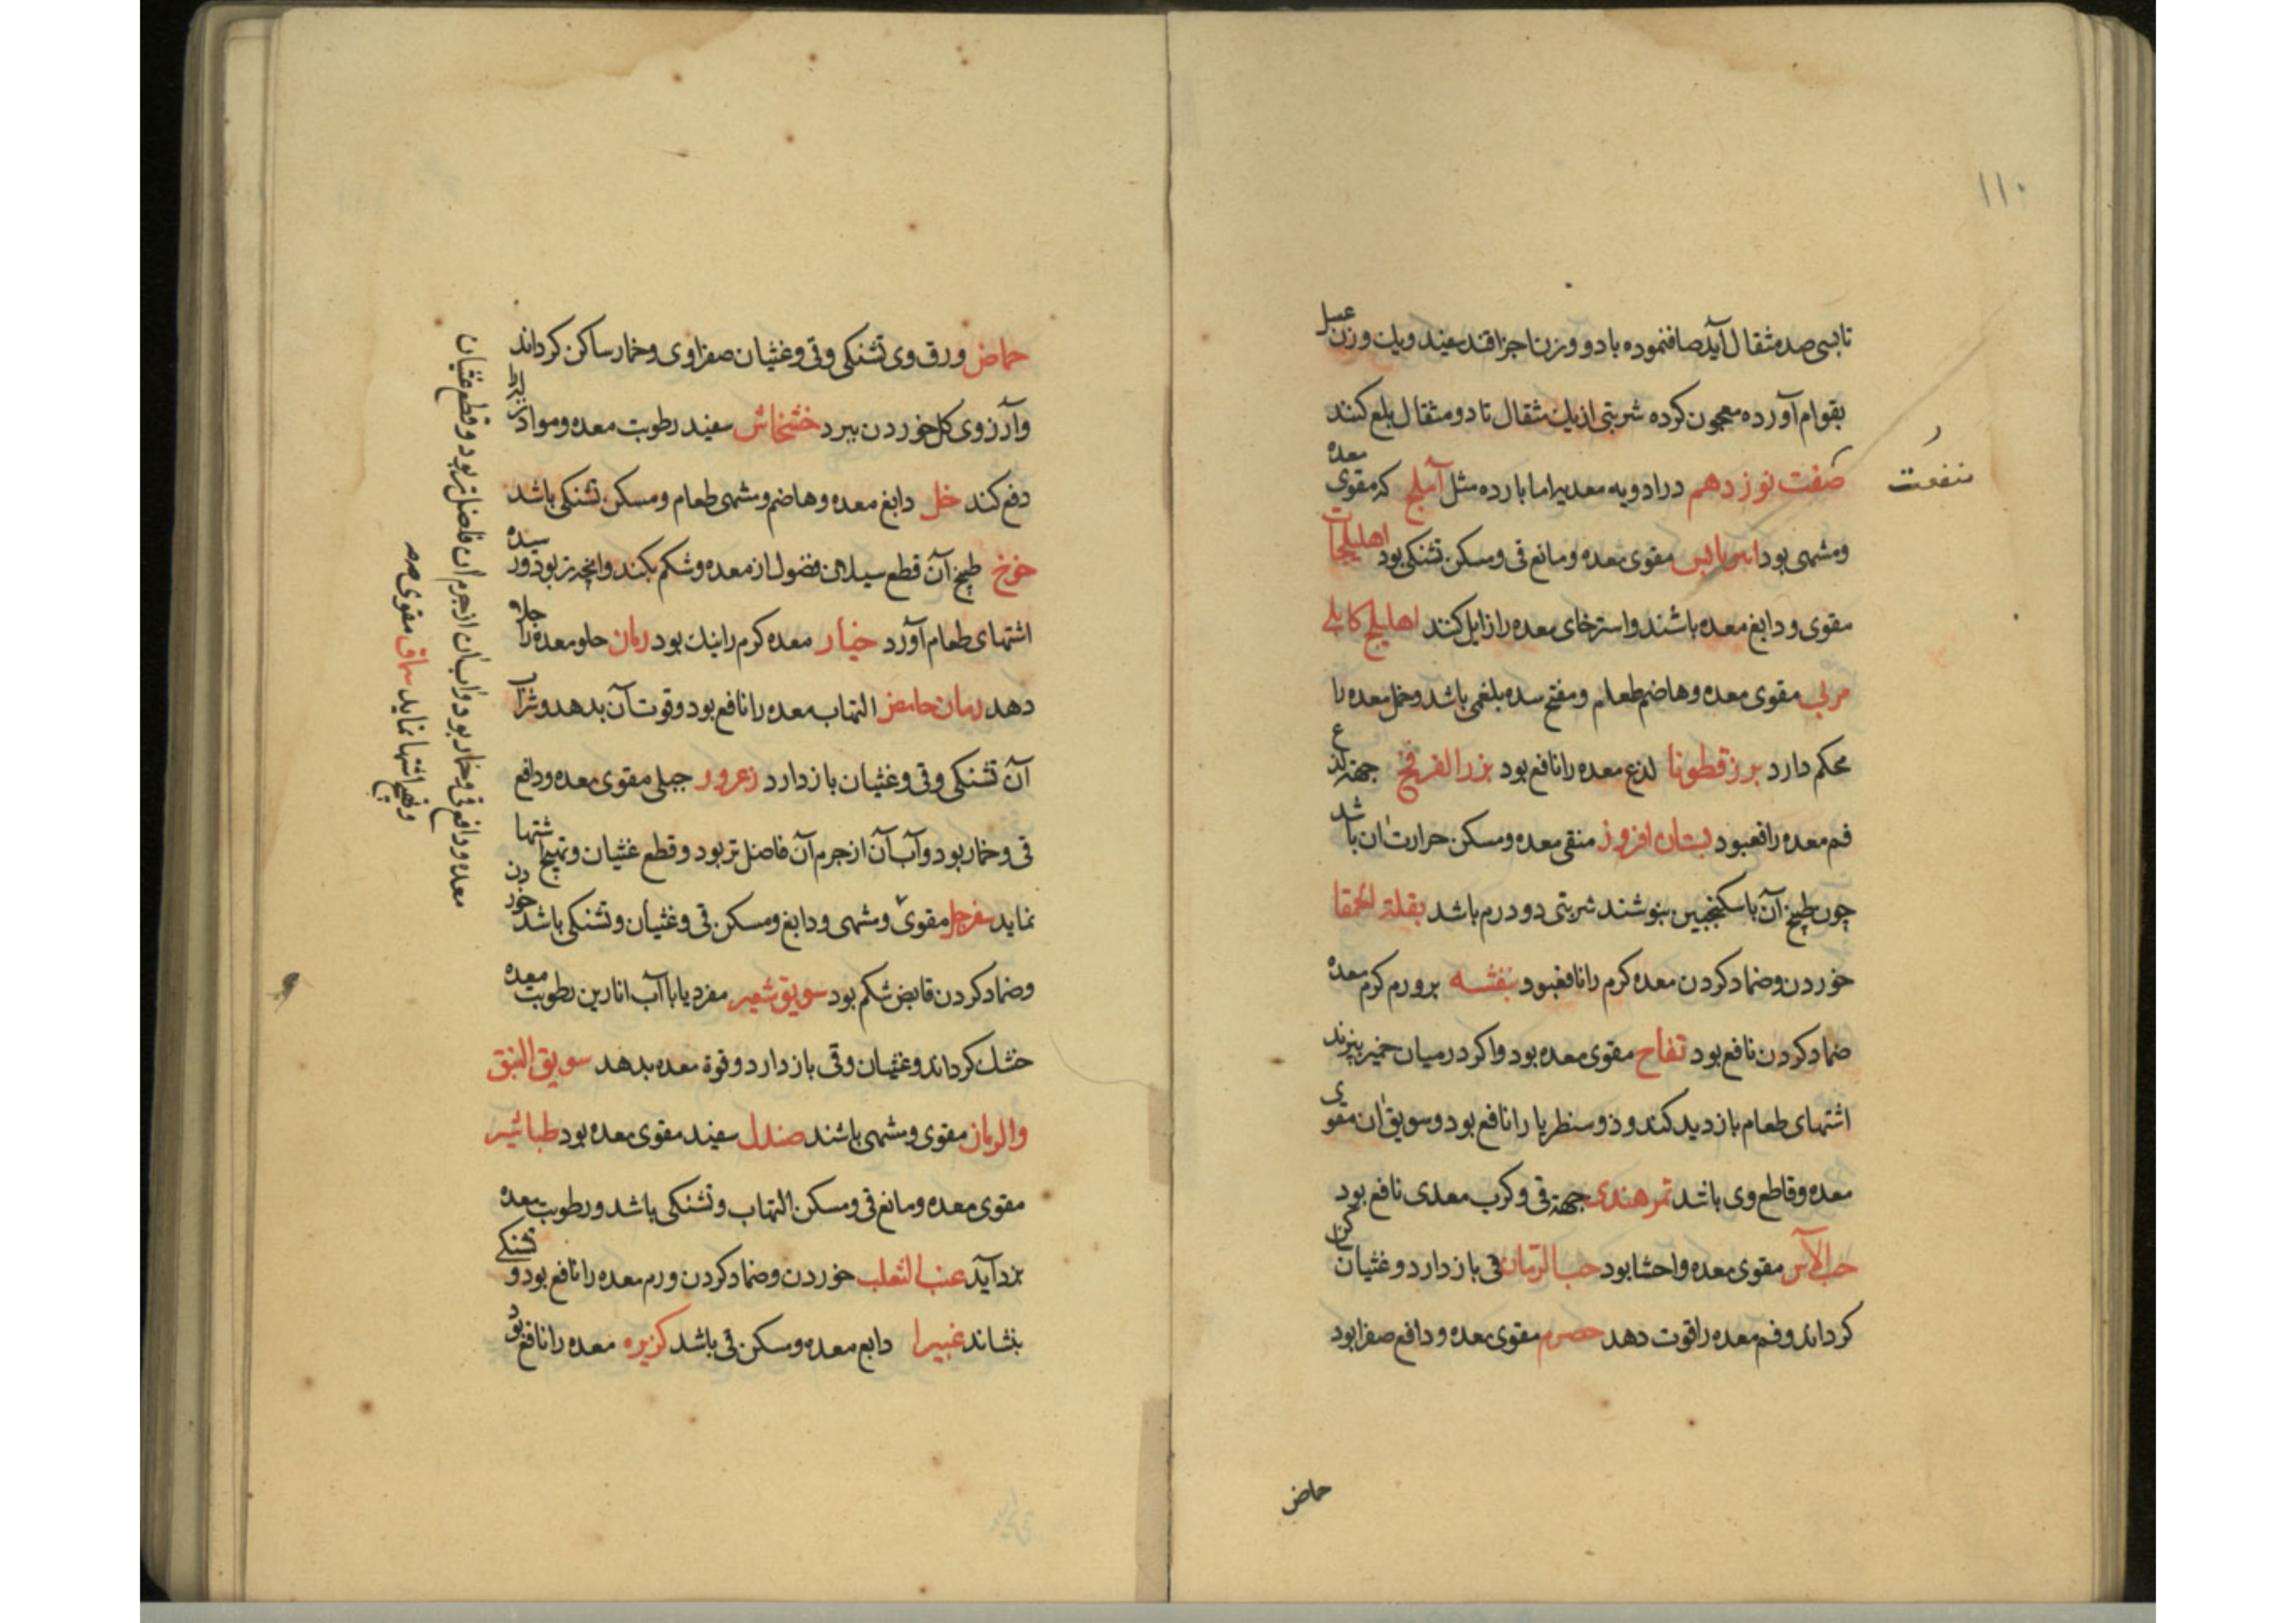 ۱۱۰
تا بسی صد مثقال آید صاف نموده با دو وزن اجزا قند سفید و یک وزن عسل
بقوام آورده معجون کرده شربتی از یک مثقال تا دو مثقال بلع کنند
صفت نوزدهم در ادویه معدیه اما بارده مثل آملج که مقوی معده
منفعت
ومشهی بود امبرباریس مقوی معده ومانع قی ومسکن تشنکی بود اهلیلجات
مقوی ودابغ معده باشند واسترخای معده را زایل کنند اهلیلج کابلی
مربی مقوی معده وهاضم طعام ومفتح سده بلغمی باشد وخمل معده را
محکم دارد برزقطونا لذع معده را نافع بود بزرالفرفخ جهة لذع
فم معده را نافعبود بستان افروز منقی معده ومسکن حرارت ان باشد
چون طبیخ آن با سکنجبین بنوشند شربتی دو درم باشد بقلة الحمقا
خوردن وضماد کردن معده کرم را نافعبود بنفشه بر ورم کرم معده
ضماد کردن نافع بود تفاح مقوی معده بود واکر در میان خمیر بپزند
اشتهای طعام بازدید کند وذوسنطریا را نافع بود وسویق ان مقوی
معده وقاطع وی باشد تمر هندی جهة قی وکرب معدی نافع بود
حب الآس مقوی معده واحشا بود حب الرمان قی باز دارد وغثیان کن
کرداند وفم معده را قوت دهد حصرم مقوی معده ودافع صفرا بود
حماض
حماض ورق وی تشنکی وقی وغثیان صفراوی وخمار ساکن کرداند
وآرزوی کل خوردن ببرد خشخاش سفید رطوبت معده ومواد
دفع کند خل دابغ معده وهاضم ومشهی طعام ومسکن تشنکی باشد
خوخ طبیخ آن قطع سیلان فضول از معده وشکم بکند وانچه رسیده بود ودر
اشتهای طعام آورد خیار معده کرم را نیک بود رمان حلو معده را جلا
دهد رمان حامض التهاب معده را نافع بود وقوت آن بدهد وشراب
آن تشنکی وقی وغثیان باز دارد زعرور جبلی مقوی معده ودافع
قی وخمار بود وآب آن از جرم آن فاضل تر بود وقطع غثیان وتهیج اشتها
نماید سفرجل مقوی ومشهی ودابغ ومسکن قی وغثیان وتشنکی باشد خوردن
وضماد کردن قابض شکم بود سویق شعیر مفرد یا با آب انارین رطوبت معده
خشک کرداند وغثیان وقی باز دارد وقوة معده بدهد سویق النبق
والرمان مقوی ومشهی باشند صندل سفید مقوی معده بود طباشیر
مقوی معده ومانع قی ومسکن التهاب وتشنکی باشد ورطوبت معده
بزداید عنب الثعلب خوردن وضماد کردن ورم معده را نافع بود وتشنکی
بنشاند غبیرا دابع معده ومسکن قی باشد کزبره معده را نافع بود
معده ودافع قی وخمار بود واب ان از جرم ان فاضل تر بود وقطع غثیان
وتهیج اشتها نماید سماق مقوی